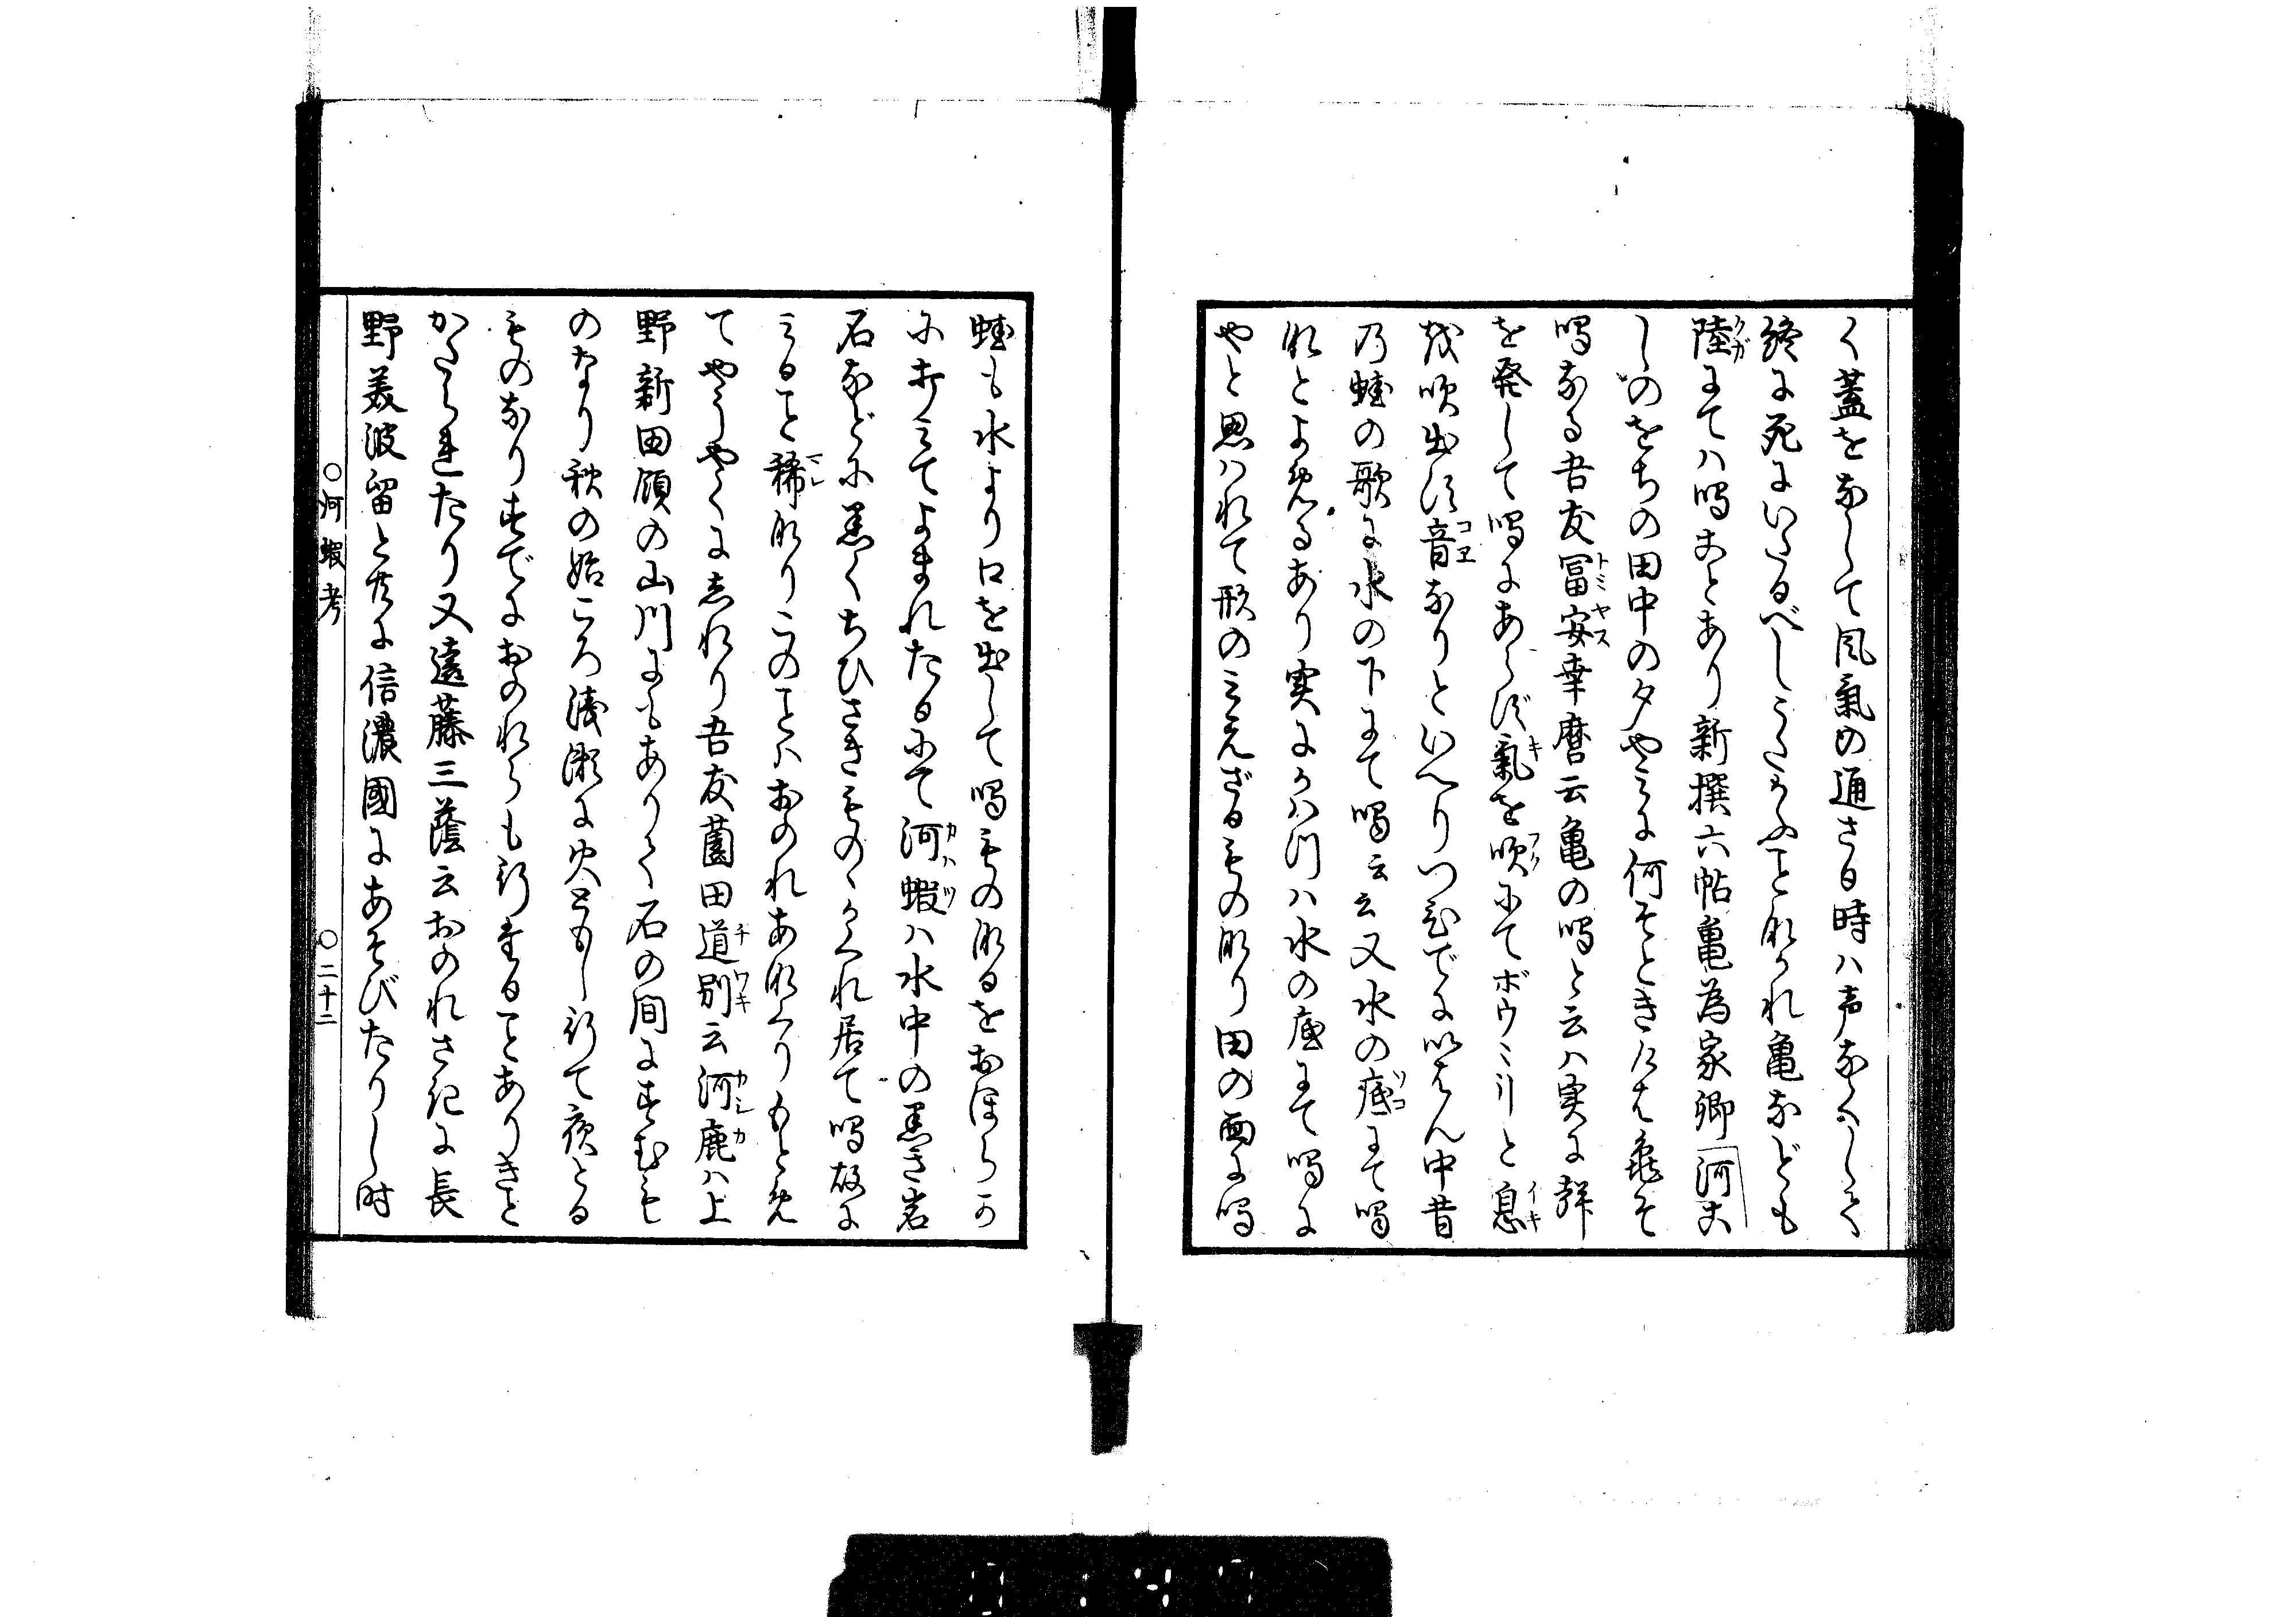 く蓋をなして風氣の通さる時ハ声なくして
終に死にいたるべしうたかふことなかれ亀なども
陸にてハ鳴ことあり新撰六帖亀為家卿河こ
しのをちの田中の夕やみに何そときけは亀そ
鳴なる吾友冨安幸麿云亀の鳴と云ハ実に声
を発して鳴にあらず氣を吹にてボウミリと息
を吹出す音なりといへりつゐでに以はん中昔
乃蛙の歌に水の下にて鳴云云又水の底にて鳴
なとよめるあり実にかハ川ハ水の底にて鳴に
やと思ハれて形のミえざるものなり田の面に鳴
蛙も水より口を出して鳴ものなるをおほらか
にきゝてよまれたるにて河蝦ハ水中の黒き岩
石などに黒くちひさきものゝかくれ居て鳴故に
ミること稀なりこのことハおのれあなくりもとめ
てやうやくにしれり吾友薗田道別云河鹿ハ上
野新田領の山川にもありて石の間にすむも
のなり秋の始ころ浅瀬に火ともし行て夜とる
ものなりすでにおのれらも行たることありきと
かたられたり又遠藤三蔭云おのれさきに長
野美波留と共に信濃國にあそびたりし時
○河蝦考　○二十二